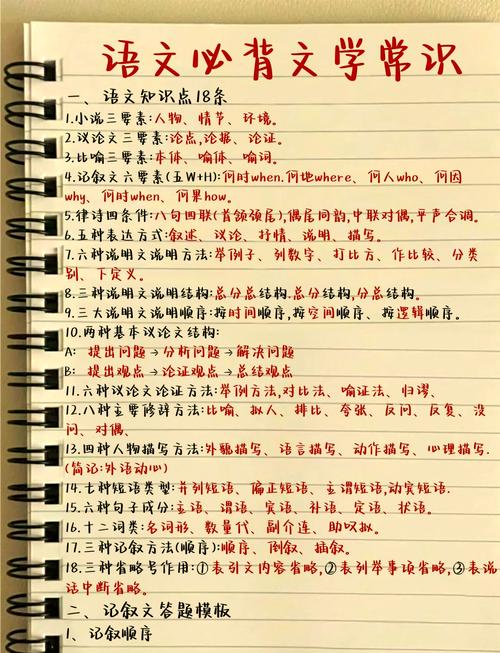 语文必背文学常识
一、语文知识点18条
1.小说三要素:人物、情节、环境。
2.议论文三要素:论点,论据、论证。
3.比喻三要素:本体、喻体、喻词。
4.记叙文六要素(五W+H):何时when.何地where、何人who、何因
why、何时when、何果how。
5.律诗四条件:八句四联(首颔颈尾),偶尾同韵,中联对偶,平声合调。
6.五种表达方式:叙述、议论、抒情、说明、描写。
7.六种说明文说明方法:举例子、列数字、打比方、作比较、分类
别、下定义。
8.三种说明文说明结构:总分总结构.总分结构,分总结构。
9.三大说明文说明顺序:按时间顺序,按空间顺序、按逻辑顺序。
10.两种基本议论文结构:
A: 提出问题→分析问题→解决问题
B: 提出观点→论证观点→总结观点
11.六种议论文论证方法:举例方法,对比法、喻证法、归谬、
12.八种主要修辞方法:比喻、拟人、排比、夸张、反问、反复、设
问、对偶、
13.四种人物描写方法:外貌描写、语言描写、动作描写、心理描写.
(简记:外语动心)
14.七种短语类型:并列短语、偏正短语、主谓短语,动宾短语.
15.六种句子成分:主语、谓语、宾语、补语、定语、状语。
16.十二词类:名词形、数量代、副介连、助叹拟。
17.三种记叙方法(顺序):顺序、倒叙、插叙。
18.三种省略号作用:①表引文内容省略,②表列举事项省略,③表说
话中断省略。
二、记叙文答题模板
1、记叙顺序